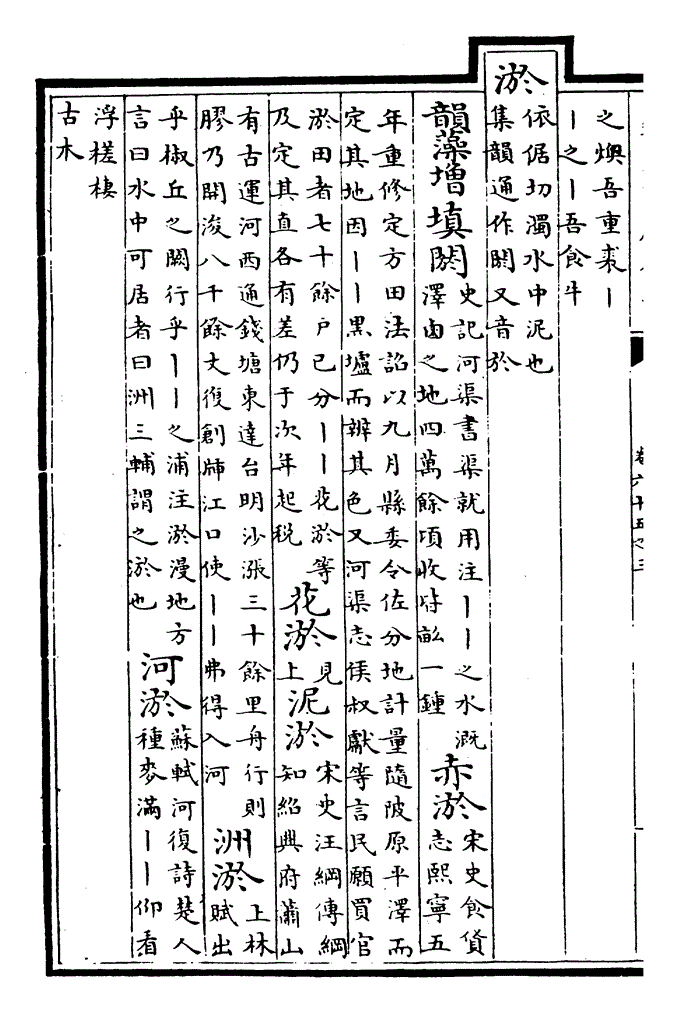 卷六十五之三
之燠吾重裘丨
丨之丨吾食斗
淤
依倨切濁水中泥也
集韻通作閼又音於
韻藻增填閼
史記河渠書渠就用注丨丨之水溉
澤鹵之地四萬餘頃收皆畝一鍾
赤淤
宋史食貨
志熙寧五
年重修定方田法詔以九月縣委令佐分地計量隨陂原平澤而
定其地因丨丨黑壚而辨其色又河渠志侯叔獻等言民願買官
淤田者七十餘户已分丨丨花淤等
及定其直各有差仍于次年起稅
花淤
見
上
泥淤
宋史汪綱傳綱
知紹興府蕭山
有古運河西通錢塘東達台明沙漲三十餘里舟行則
膠乃開浚八千餘丈復創牐江口使丨丨弗得入河
洲淤
上林
賦出
乎椒丘之闕行乎丨丨之浦注淤漫地方
言曰水中可居者曰洲三輔謂之淤也
河淤
蘇軾河復詩楚人
種麥滿丨丨仰看
浮槎棲
古木